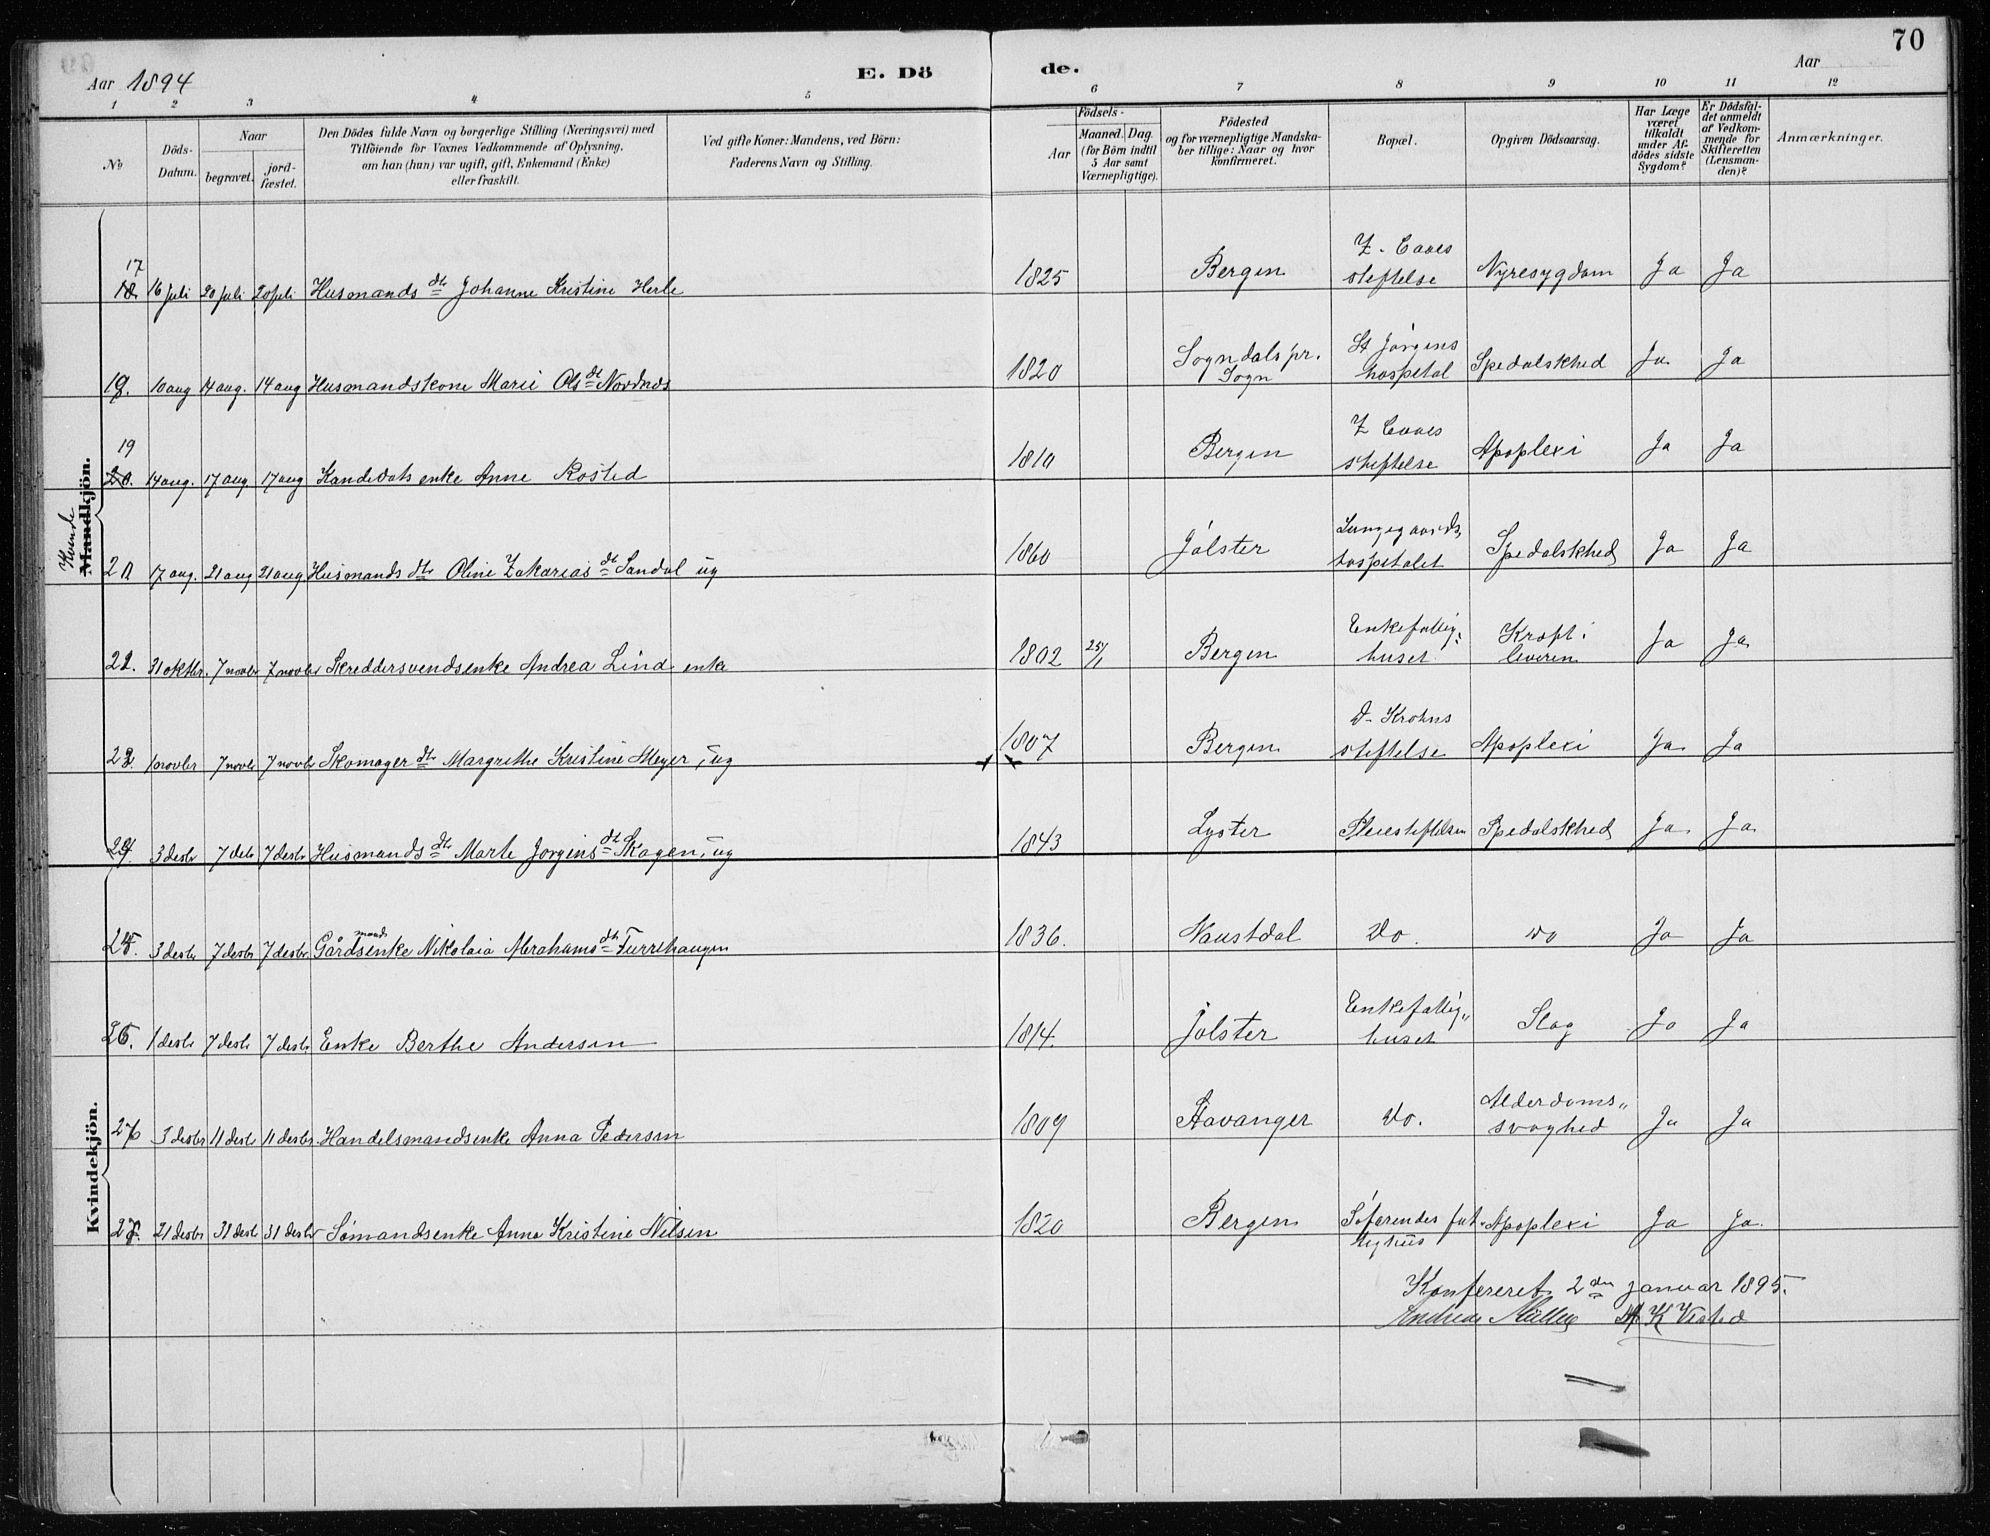 70
Aar 1894
E. Dö de.
Aar
1 2 3 4 5 6 7 8 9 10 11 12
No
Döds-Datum.
Naar
begravet.
jord-fæstet.
Den Dödes fulde Navn og borgerlige Stilling (Næringsvei) med
Tilföiende for Voxnes Vedkommende af Oplysning,
om han (han) var ugift, gift, Enkemand (Enke)
eller fraskilt.
Ved gifte Koner: Mandens, ved Börn:
Faderens Navn og Stilling.
Födsels-
Aar
Maaned. Dag.
(for Börn indtil
5 Aar samt
Værnepligtige).
Födested
og for værnepligtige Mandska-
ber tillige: Naar og hvor
konfirmeret.
Bopæl.
Opgiven Dödsaarsag.
Har Læge
været
tilkaldt
under Af-
dödes sidste
Sygdom?
Er Dödsfal-
det anmeldt
af Vedkom-
mende for
Skifteretten
(Lensman-
den)?
Anmærkninger.
Kvinde
Mandkjön.
17
18. 16 juli 20 juli 20 juli Husmands dtr Johanne Kristine Herle 1825 Bergen Z. Caaes stiftelse Nyresygdom Ja Ja
18. 10 aug 14 aug. 14 aug Husmandskone Marie Ols dt Nordnes 1820 Sogndals pr. Sogn St Jørgens hospital Spedalskhed Ja Ja
19
20. 14 aug. 17 aug 17 aug Kandidats enke Anne Rosted 1810 Bergen Z Caaes stiftelse Apoplexi Ja Ja
20 17 aug. 21 aug 21 aug Husmands dtr Oline Zakarias dt Sandal ug 1860 Jølster Lungegaards hospitalet Spedalskhed Ja Ja
21. 31 oktbr. 7 novbr 7 novbr Skreddersvendsenke Andrea Lind enke 1802 25/1 Bergen Enkefattig- huset Kræft i leveren Ja Ja
22. 1 novbr 7 novbr 7 novbr Skomager dtr Margrethe Kristine Meyer, ug 1807 Bergen D. Krohns stiftelse Apoplexi Ja Ja
23. 3 desbr 7 debr 7 desbr Husmands dtr Marte Jørgens dt Skagen, ug 1843 Lyster Pleiestiftelsen Spedalskhed Ja Ja
24. 3 desbr 7 desbr 7 desbr Gårdmandsenke Nikolaia Abrahams dtr Furrehaugen 1836. Naustdal Do. Do Ja Ja
Kvindekjön.
25. 1 desbr 7 desbr 7 desbr Enke Berthe Andersen 1814. Jølster Enkefattig- huset Slag Ja Ja
26 3 desbr 11 desbr 11 desbr Handelsmandsenke Anna Pedersen 1809 Stavanger Do. Alderdoms- svaghed Ja Ja
27. 21 desbr 31 desbr 31 desbr Sømandsenke Anna Kristine Nilsen 1820 Bergen Søfarendes fattighus Apoplexi Ja Ja.
Konfereret 2den januar 1895.
Andreas Müller K Vested